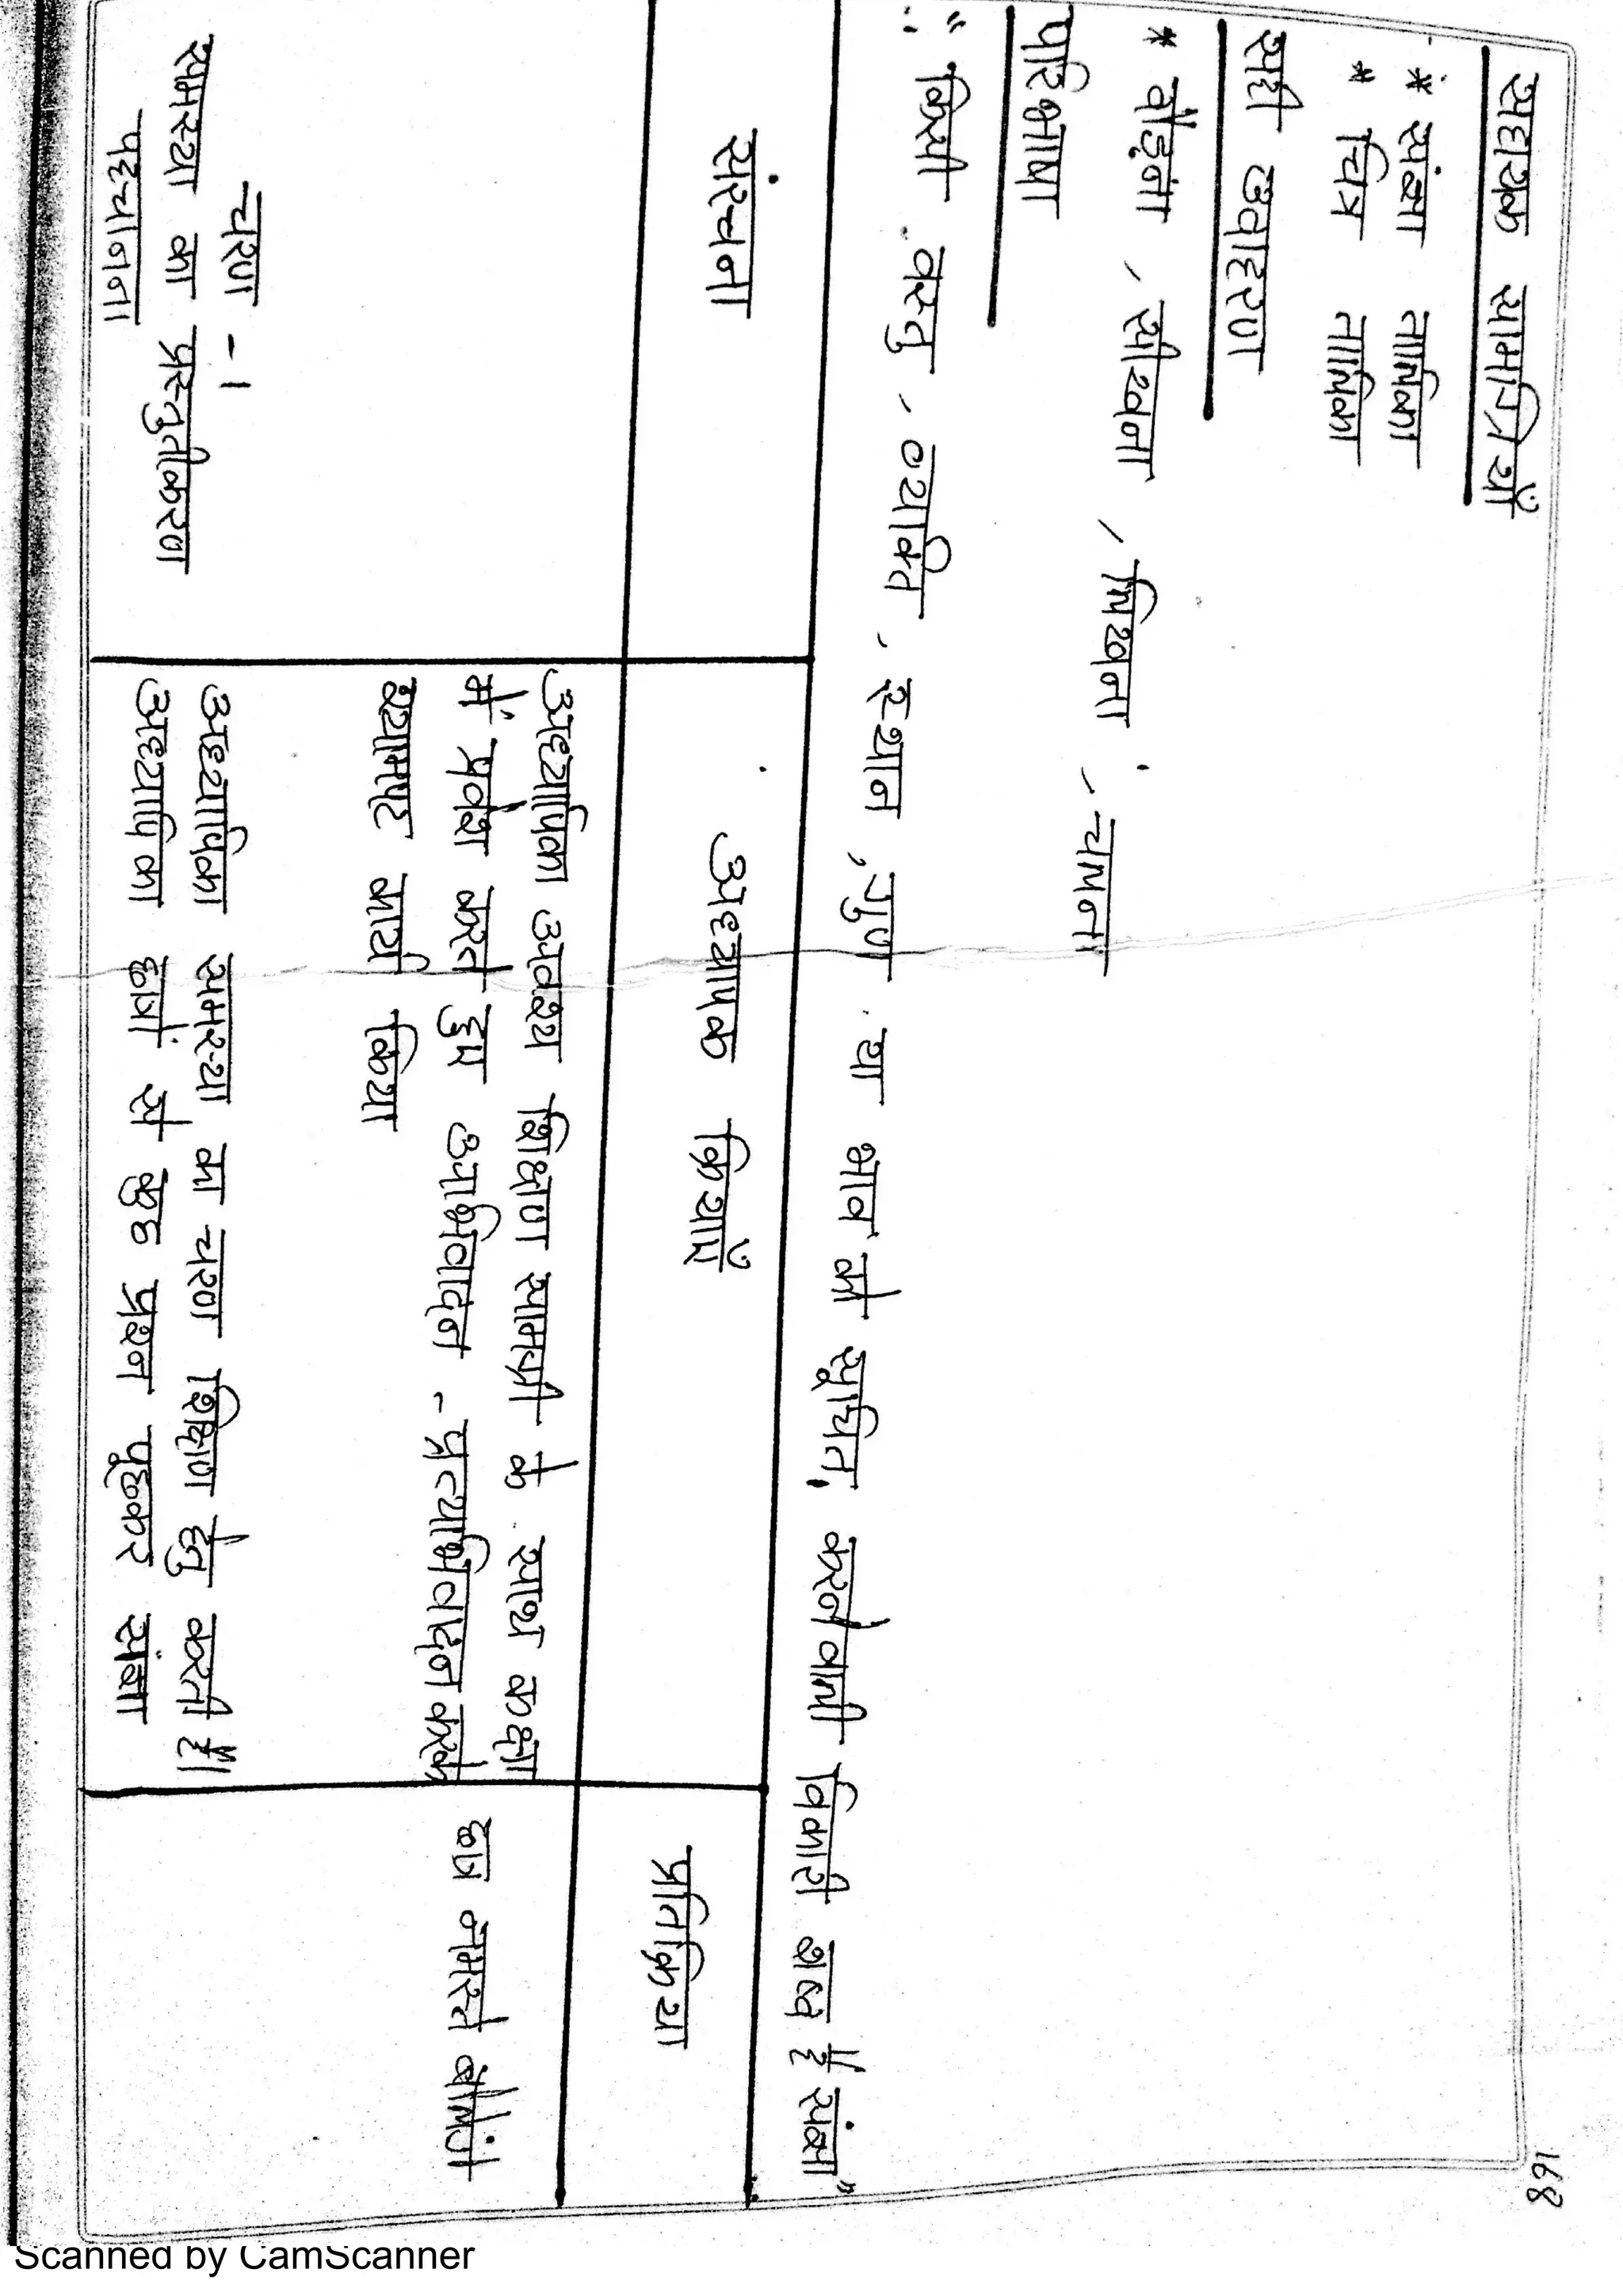 168
सहायक सामग्रियाँ
* संज्ञा तालिका
* चित्र तालिका
सही उदाहरण
* दौड़ना, सीखना, लिखना, चलना
परिभाषा
:. "किसी वस्तु, व्यक्ति, स्थान, गुण या भाव को सूचित करने वाली विकारी शब्द हैं संज्ञा"
संरचना
अध्यापक क्रियाएँ
प्रतिक्रिया
अध्यापिका अवश्य शिक्षण सामग्री के साथ कक्षा
में प्रवेश करते हुए अभिवादन - प्रत्यभिवादन करके
श्यामपट कार्य किया
छात्र नमस्ते बोलेंगे
चरण - 1
समस्या का प्रस्तुतीकरण
पहचानना
अध्यापिका समस्या का चरण शिक्षण हेतु करती हैं।
अध्यापिका छात्रों से कुछ प्रश्न पूछकर संज्ञा
Scanned by CamScanner